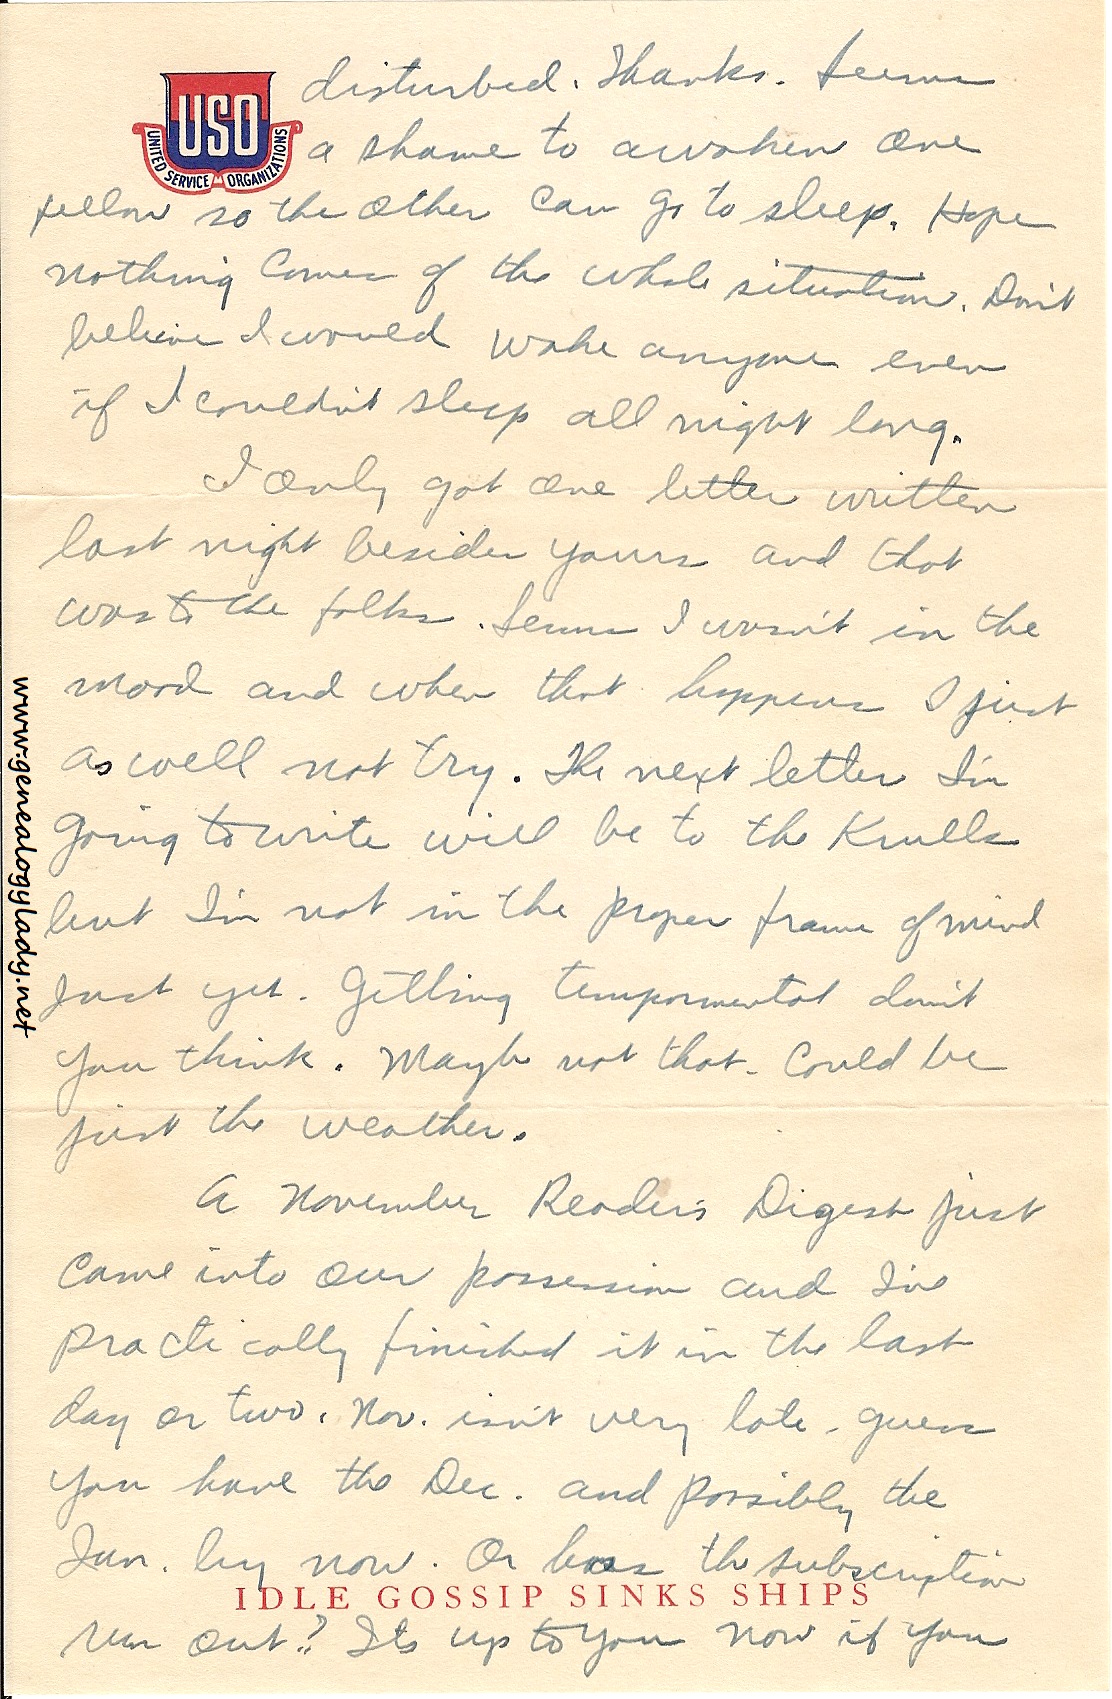 USO
UNITED SERVICE ORGANIZATIONS
disturbed. Thanks. Seems
a shame to awaken one
fellow so the other can go to sleep. Hope
nothing comes of the whole situation. Don't
believe I would wake anyone even
if I couldn't sleep all night long.
I only got one letter written
last night besides yours and that
was to the folks. Seems I wasn't in the
mood and when that happens I just
as well not try. The next letter I'm
going to write will be to the Krulls
but I'm not in the proper frame of mind
just yet. Getting tempormental don't
you think. Maybe not that. Could be
just the weather.
A November Reader's Digest just
came into our possession and I've
practically finished it in the last
day or two. Nov. isn't very late. guess
you have the Dec. and possibly the
Jan. by now. Or has the subscription
IDLE GOSSIP SINKS SHIPS
run out? Its up to you now if you
www.genealogylady.net